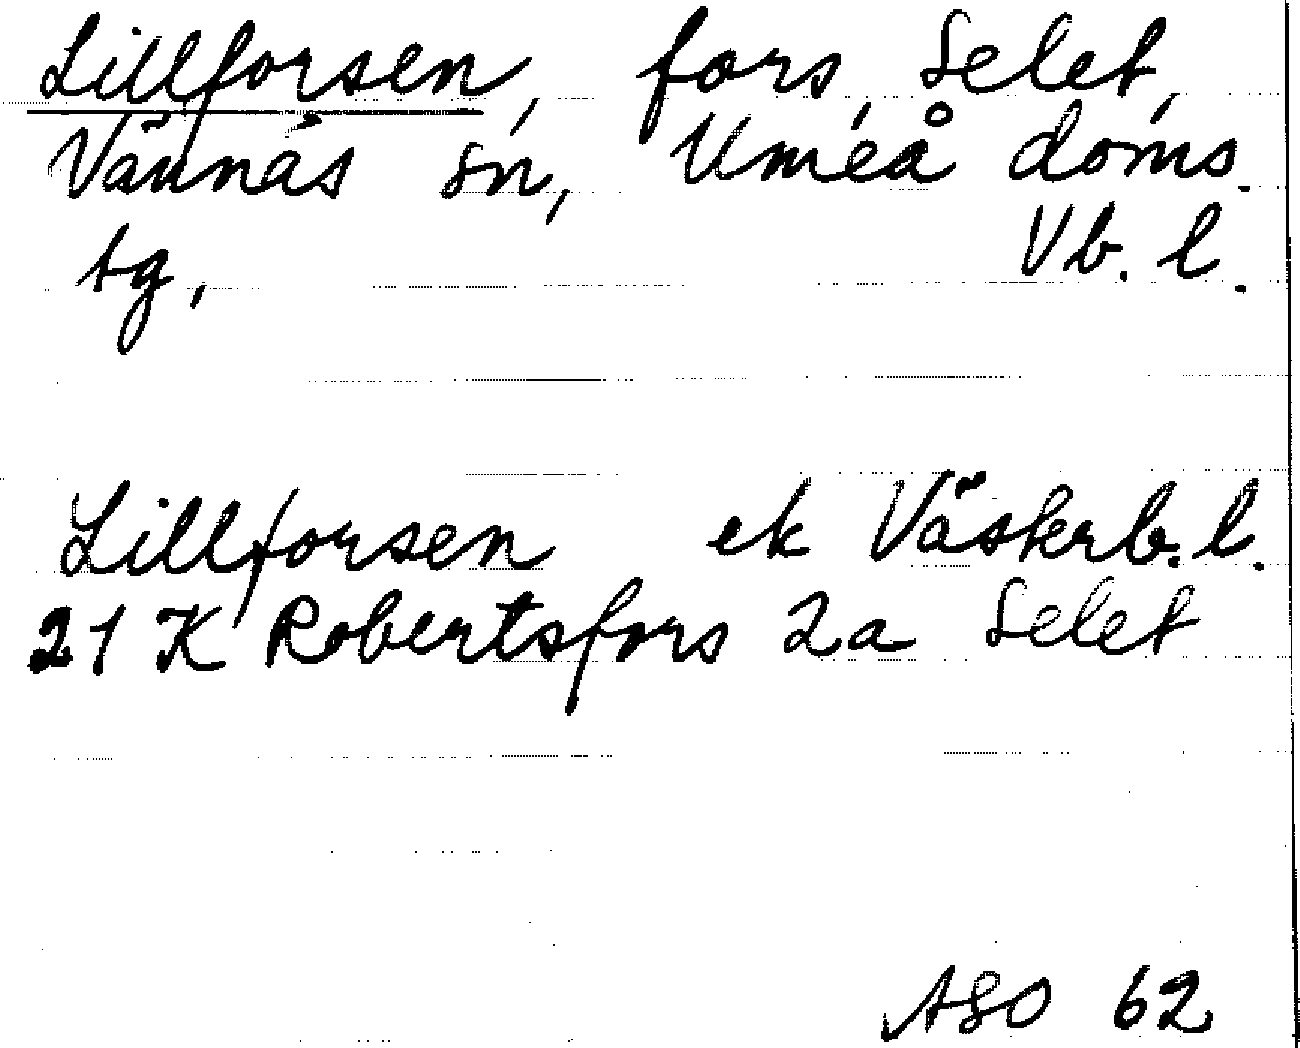 Lillforsen, fors, Selet,
Vännäs sn, Umeå doms.
tg, Vb. l.
Lillforsen ek Västerb. l.
21 K Robertsfors 2a Selet
ASO 62